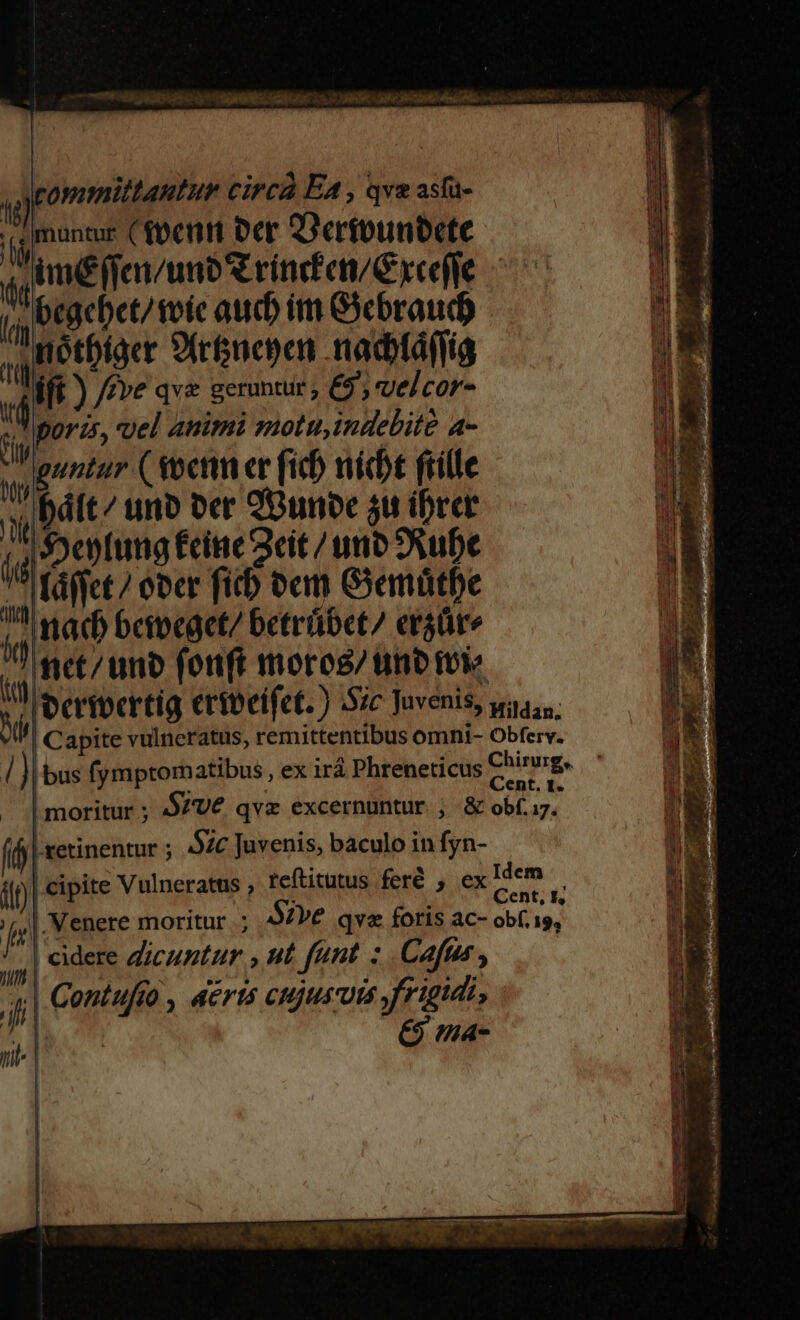 committantur circà Ea, qvæ asſu-
muntur (wenn der Verwundete
im Eſſen/und Trincken/Exceſſe
begehet/ wie auch im Gebrauch
nöthiger Artzneyen nachläſſig
iſt) ſive qvæ geruntur, & vel cor-
poris, vel animi motu, indebitè a-
guntur (wenn er ſich nicht ſtille
hält/ und der Wunde zu ihrer
Heylung keine Zeit/ und Ruhe
läſſet/ oder ſich dem Gemüthe
nach beweget/ betrübet/ erzür-
net/ und ſonſt moros/ und wi-
derwertig erweiſet.) Sic Juvenis, Hildan.
Capite vulneratus, remittentibus omni- Obſerv.
bus ſymptomatibus, ex irâ Phreneticus Chirurg.
Cent. 1.
moritur; Sive qvæ excernuntur, & obſ. 17.
retinentur; Sic Juvenis, baculo in ſyn-
cipite Vulneratus, reſtitutus ferè, ex Idem
Cent. 1,
Venere moritur; Sive qvæ foris ac- obſ. 19,
cidere dicuntur, ut ſunt: Caſus,
Contuſio, aëris cujusvis, frigidi,
& ma-